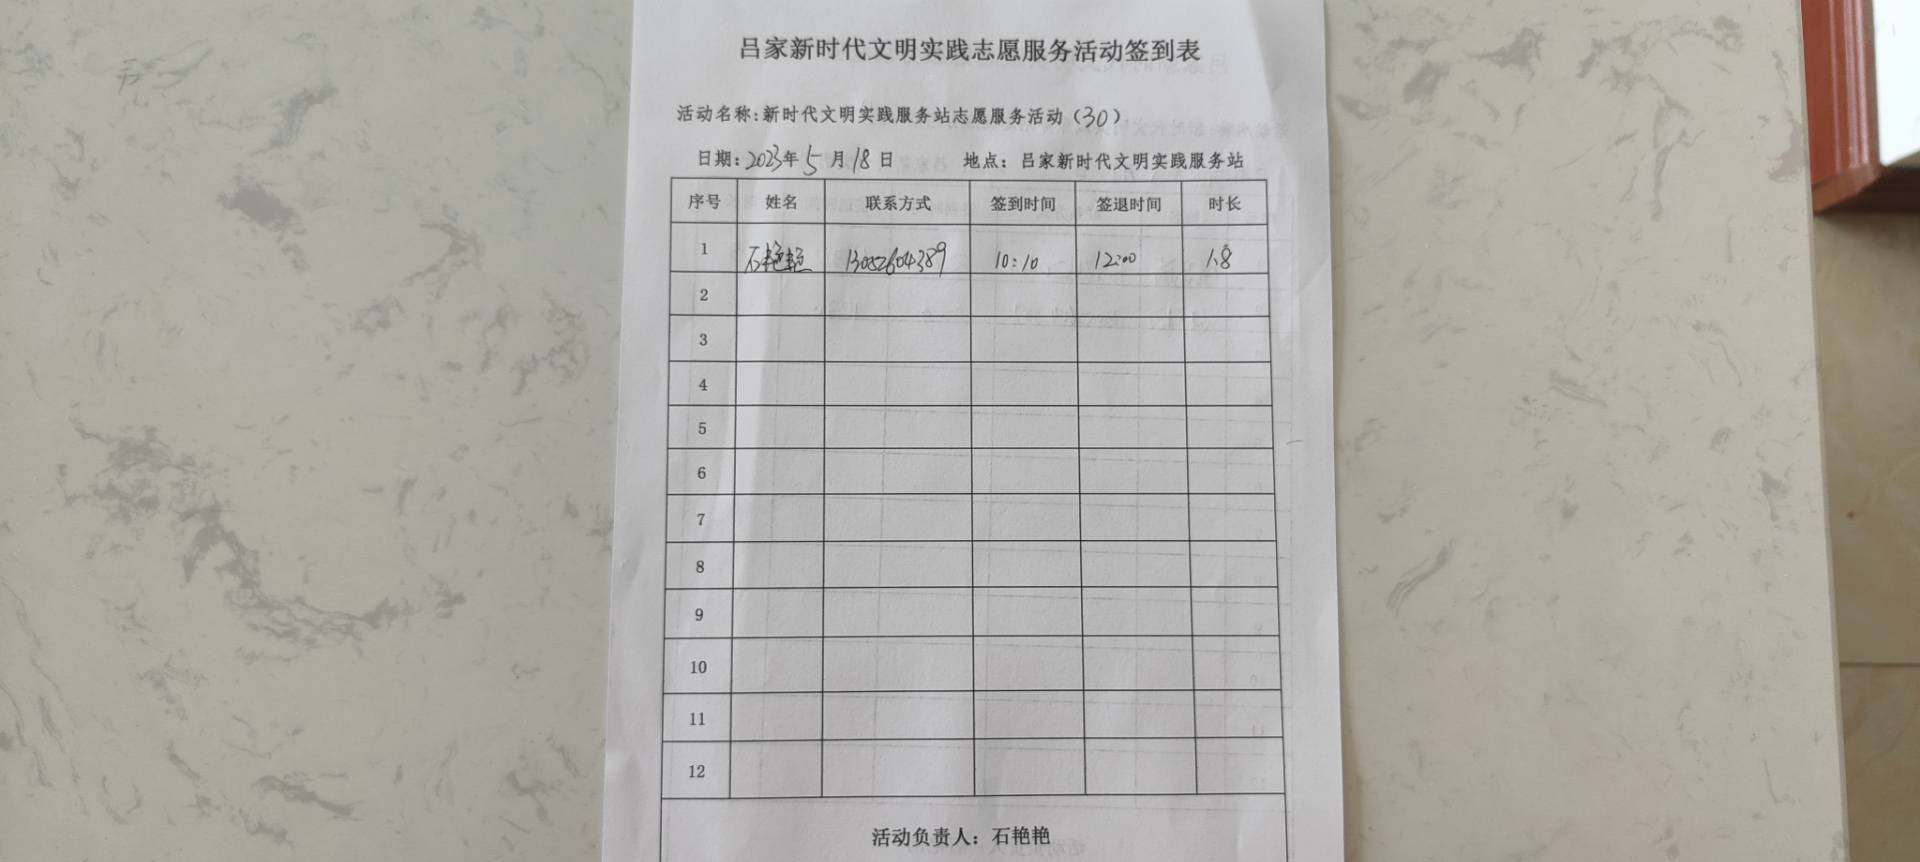 吕家新时代文明实践志愿服务活动签到表
活动名称:新时代文明实践服务站志愿服务活动(30)
日期:2023年5月18日 地点:吕家新时代文明实践服务站
序号 姓名 联系方式 签到时间 签退时间 时长
1 石艳艳 13052604389 10:10 12:00 1.8
2
3
4
5
6
7
8
9
10
11
12
活动负责人:石艳艳